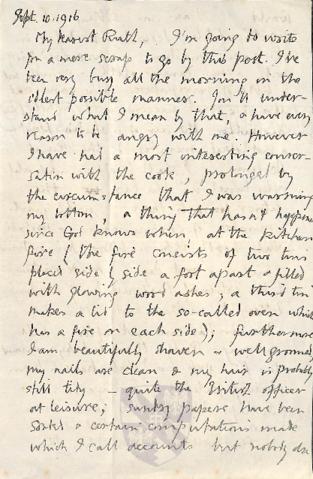 Sept. 10. 1916
My dearest Ruth, I'm going to write
you a mere scrap to go by this post. I've
been very busy all the morning in the
idlest possible manner. You'll under-
stand what I mean by that, & have every
reason to be angry with me. However
I have had a most interesting conver-
sation with the cook, prolonged by
the circumstance that I was warming
my bottom, a thing that hasn't happened
since God knows when, at the kitchen
fire (the fire consists of two tins
placed side by side a foot apart & filled
with glowing wood ashes; a third tin
makes a lid to the so-called oven which
has a fire on each side); furthermore
I am beautifully shaven & well groomed,
my nails are clean & my hair is probably
still tidy — quite the British officer
at leisure; sundry papers have been
sorted & certain computations made
which I call accounts but nobody else